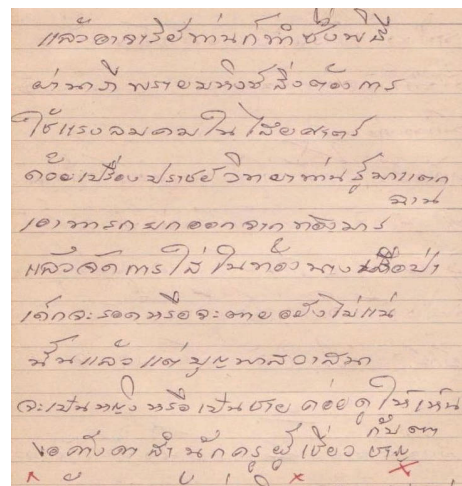 แล้วอาจารย์ท่านก็ทำซึ่งพิธี
ผ่านาภี พรายมหิงษ์ สิ่งต้องการ
ใช้แรงลมคมในไสยศาตร์
ด้วยเปรื่องปราชย์วิทยาท่านรู้มาแตกฉาน
เอาทารกยกออกจากท้องมาร
แล้วจัดการใส่ในท้องนางเสือป่า
เด็กจะรอดหรือจะตายยังไม่แน่
นั้นแล้วแต่บุญพาสวาสนา
จะเป็นหญิงหรือเป็นชายค่อยดูให้เห็นกับตา
ขอ สำนักครูผู้เชี่ยวชาญ